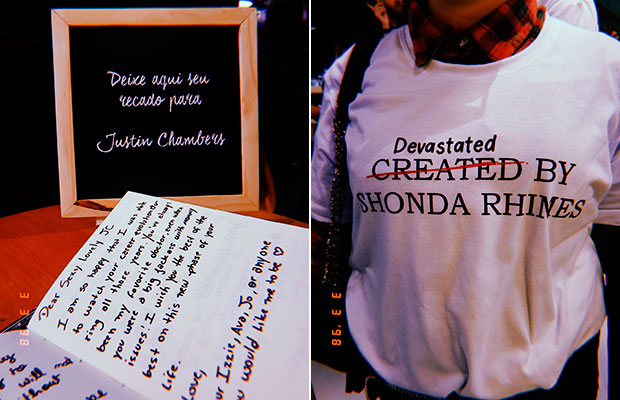 Deixe aqui seu
recado para
Justin Chambers
Dear Sexy Lovely JC
I am so happy that I was able
to watch your career
ring all those years. You've always
been my favorite doctor even when
you were a big jackass with mommy
issues! I wish you the best of the
best on this new phase of your
life.
Love,
ur Izzie, Ava, Jo, or anyone
u would like me to be ♡
will not
3 3 '98
Devastated
CREATED BY
SHONDA RHIMES
3 3 '98